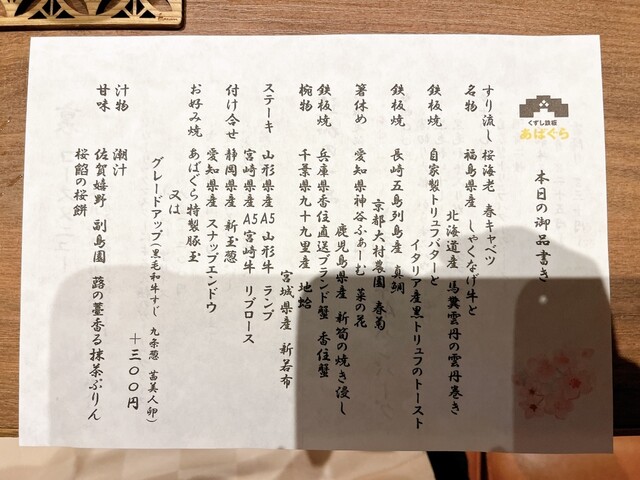 本日の御品書き
くずし鉄板
あばぐら
すり流し 桜海老 春キャベツ
名物 福島県産 しゃくなげ牛と
北海道産 馬糞雲丹の雲丹巻き
鉄板焼 自家製トリュフバターと
イタリア産黒トリュフのトースト
鉄板焼 長崎五島列島産 真鯛
京都大村農園 春菊
箸休め 愛知県神谷ふぁーむ 菜の花
鹿児島県産 新筍の焼き浸し
鉄板焼 兵庫県香住直送ブランド蟹 香住蟹
椀物 千葉県九十九里産 地蛤
宮城県産 新若布
ステーキ 山形県産A5 山形牛 ランプ
宮崎県産A5 宮崎牛 リブロース
付け合せ 静岡県産 新玉葱
愛知県産 スナップエンドウ
お好み焼 あばぐら特製豚玉
又は
グレードアップ(黒毛和牛すじ 九条葱 苗美人卵)
+三〇〇円
汁物 潮汁
甘味 佐賀嬉野 副島園 蕗の薹香る抹茶ぷりん
桜餡の桜餅